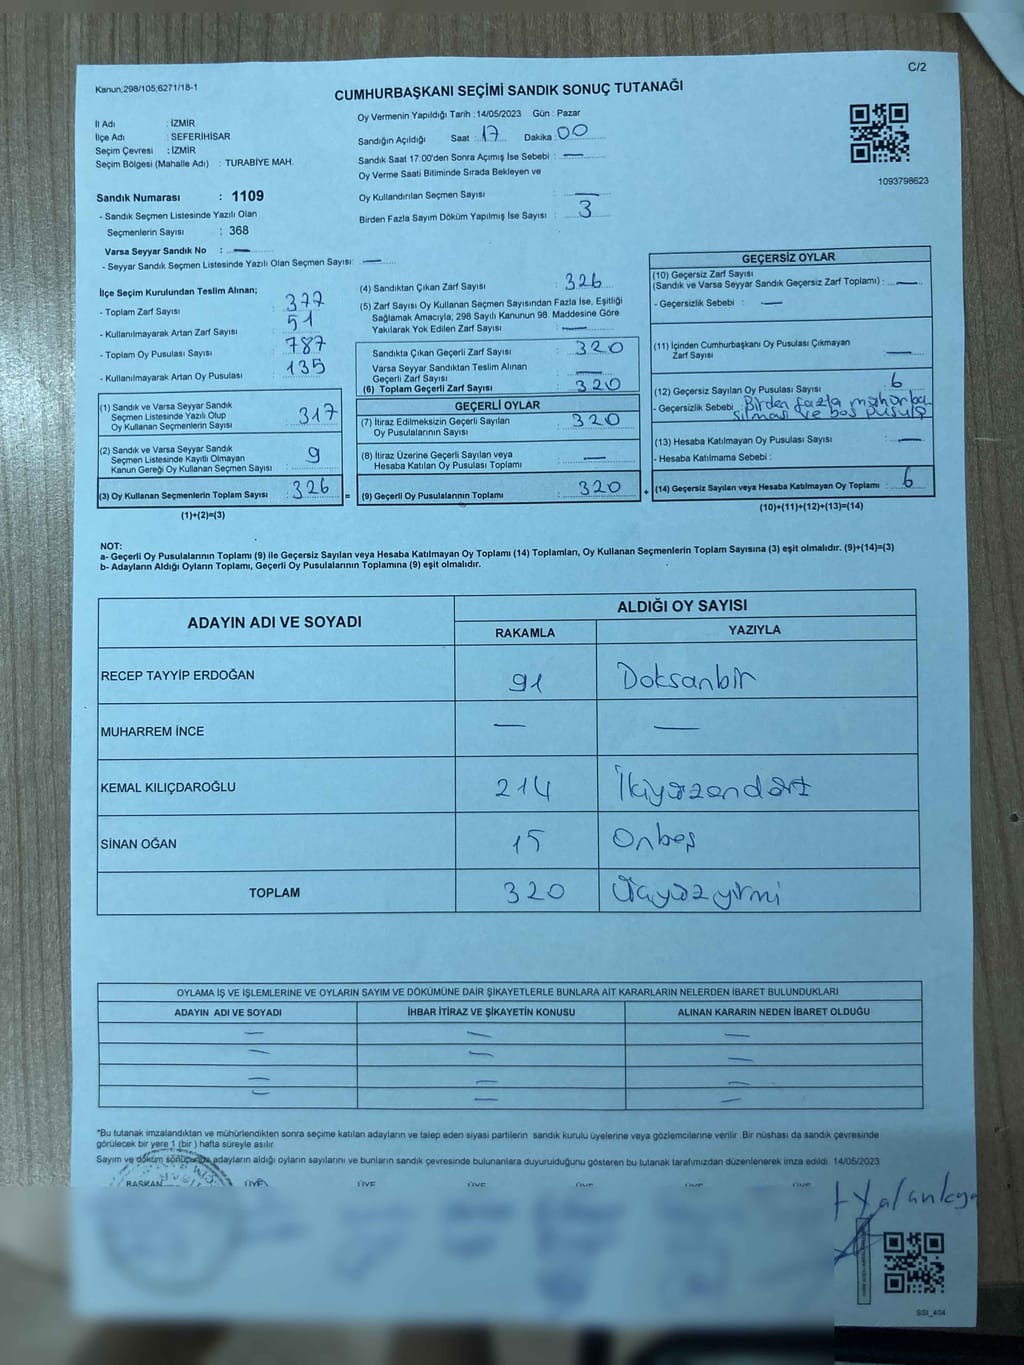 Kanun;298/105;6271/18-1
C/2
CUMHURBAŞKANI SEÇİMİ SANDIK SONUÇ TUTANAĞI
İl Adı : İZMİR
İlçe Adı : SEFERİHİSAR
Seçim Çevresi : İZMİR
Seçim Bölgesi (Mahalle Adı) : TURABİYE MAH.
Sandık Numarası : 1109
- Sandık Seçmen Listesinde Yazılı Olan
Seçmenlerin Sayısı : 368
Varsa Seyyar Sandık No : —
- Seyyar Sandık Seçmen Listesinde Yazılı Olan Seçmen Sayısı: —
Oy Vermenin Yapıldığı Tarih : 14/05/2023 Gün : Pazar
Sandığın Açıldığı Saat : 17 Dakika : 00
Sandık Saat 17:00'den Sonra Açımış İse Sebebi : —
Oy Verme Saati Bitiminde Sırada Bekleyen ve
Oy Kullandırılan Seçmen Sayısı : —
Birden Fazla Sayım Döküm Yapılmış İse Sayısı : 3
1093798623
İlçe Seçim Kurulundan Teslim Alınan;
- Toplam Zarf Sayısı : 377
- Kullanılmayarak Artan Zarf Sayısı : 51
- Toplam Oy Pusulası Sayısı : 787
- Kullanılmayarak Artan Oy Pusulası : 135
(1) Sandık ve Varsa Seyyar Sandık
Seçmen Listesinde Yazılı Olup
Oy Kullanan Seçmenlerin Sayısı : 317
(2) Sandık ve Varsa Seyyar Sandık
Seçmen Listesinde Kayıtlı Olmayan
Kanun Gereği Oy Kullanan Seçmen Sayısı : 9
(3) Oy Kullanan Seçmenlerin Toplam Sayısı : 326 =
(1)+(2)=(3)
(4) Sandıktan Çıkan Zarf Sayısı : 326
(5) Zarf Sayısı Oy Kullanan Seçmen Sayısından Fazla İse, Eşitliği
Sağlamak Amacıyla; 298 Sayılı Kanunun 98. Maddesine Göre
Yakılarak Yok Edilen Zarf Sayısı : —
Sandıkta Çıkan Geçerli Zarf Sayısı : 320
Varsa Seyyar Sandıktan Teslim Alınan
Geçerli Zarf Sayısı : —
(6) Toplam Geçerli Zarf Sayısı : 320
GEÇERLİ OYLAR
(7) İtiraz Edilmeksizin Geçerli Sayılan
Oy Pusulalarının Sayısı : 320
(8) İtiraz Üzerine Geçerli Sayılan veya
Hesaba Katılan Oy Pusulası Toplamı : —
(9) Geçerli Oy Pusulalarının Toplamı : 320 +
GEÇERSİZ OYLAR
(10) Geçersiz Zarf Sayısı
(Sandık ve Varsa Seyyar Sandık Geçersiz Zarf Toplamı) : —
- Geçersizlik Sebebi : —
(11) İçinden Cumhurbaşkanı Oy Pusulası Çıkmayan
Zarf Sayısı : —
(12) Geçersiz Sayılan Oy Pusulası Sayısı : 6
- Geçersizlik Sebebi : Birden fazla mühür ba
silması ve boş pusula
(13) Hesaba Katılmayan Oy Pusulası Sayısı : —
- Hesaba Katılmama Sebebi :
(14) Geçersiz Sayılan veya Hesaba Katılmayan Oy Toplamı : 6
(10)+(11)+(12)+(13)=(14)
NOT:
a- Geçerli Oy Pusulalarının Toplamı (9) ile Geçersiz Sayılan veya Hesaba Katılmayan Oy Toplamı (14) Toplamları, Oy Kullanan Seçmenlerin Toplam Sayısına (3) eşit olmalıdır. (9)+(14)=(3)
b- Adayların Aldığı Oyların Toplamı, Geçerli Oy Pusulalarının Toplamına (9) eşit olmalıdır.
ADAYIN ADI VE SOYADI ALDIĞI OY SAYISI
RAKAMLA YAZIYLA
RECEP TAYYİP ERDOĞAN 91 Doksanbir
MUHARREM İNCE — —
KEMAL KILIÇDAROĞLU 214 İkiyüzondört
SİNAN OĞAN 15 Onbeş
TOPLAM 320 Üçyüzyirmi
OYLAMA İŞ VE İŞLEMLERİNE VE OYLARIN SAYIM VE DÖKÜMÜNE DAİR ŞİKAYETLERLE BUNLARA AİT KARARLARIN NELERDEN İBARET BULUNDUKLARI
ADAYIN ADI VE SOYADI İHBAR İTİRAZ VE ŞİKAYETİN KONUSU ALINAN KARARIN NEDEN İBARET OLDUĞU
— — —
— — —
— — —
— — —
*Bu tutanak imzalandıktan ve mühürlendikten sonra seçime katılan adayların ve talep eden siyasi partilerin sandık kurulu üyelerine veya gözlemcilerine verilir. Bir nüshası da sandık çevresinde
görülecek bir yere 1 (bir ) hafta süreyle asılır.
Sayım ve döküm sonucunda adayların aldığı oyların sayılarını ve bunların sandık çevresinde bulunanlara duyurulduğunu gösteren bu tutanak tarafımızdan düzenlenerek imza edildi. 14/05/2023
BAŞKAN ÜYE ÜYE ÜYE ÜYE ÜYE ÜYE
SSI_404